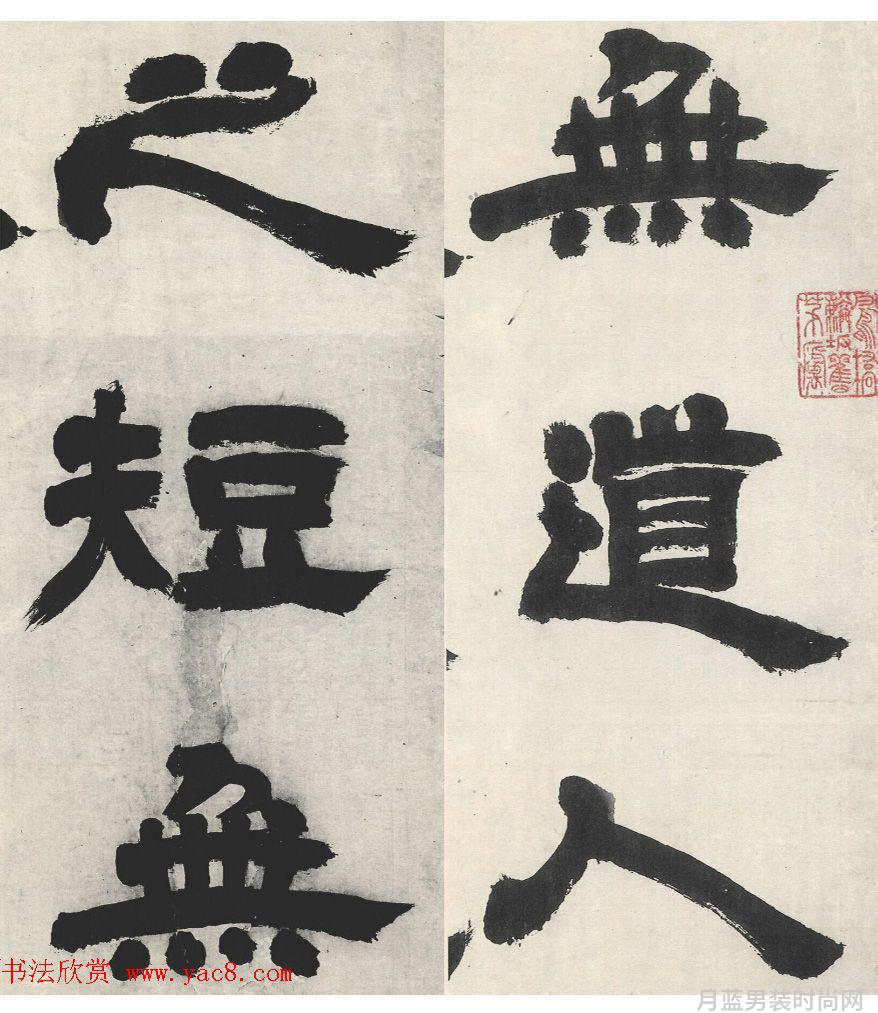 無道人
之短無
书法欣赏 www.yac8.com
月蓝男装时尚网